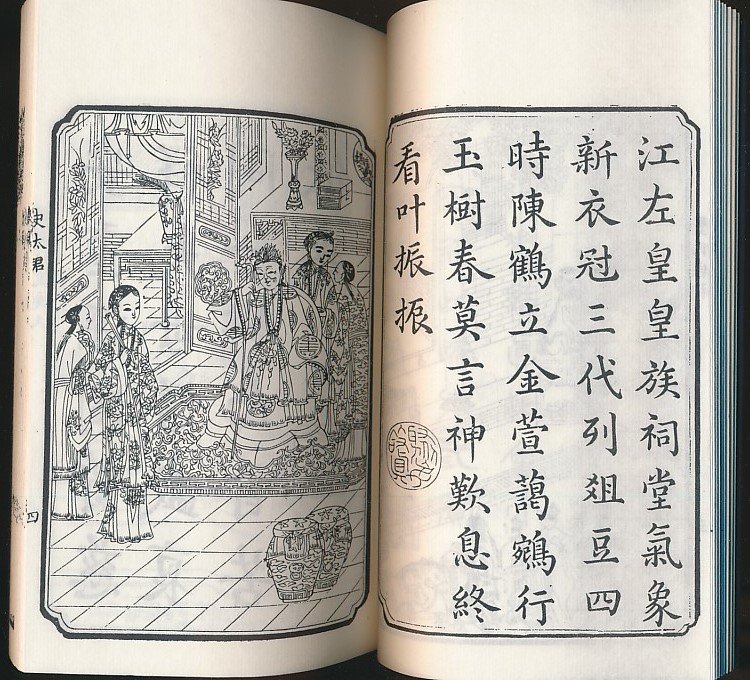 江左皇皇族祠堂氣象
新衣冠三代列爼豆四
時陳鶴立金萱藹鵷行
玉樹春莫言神歎息終
看叶振振
史太君
四